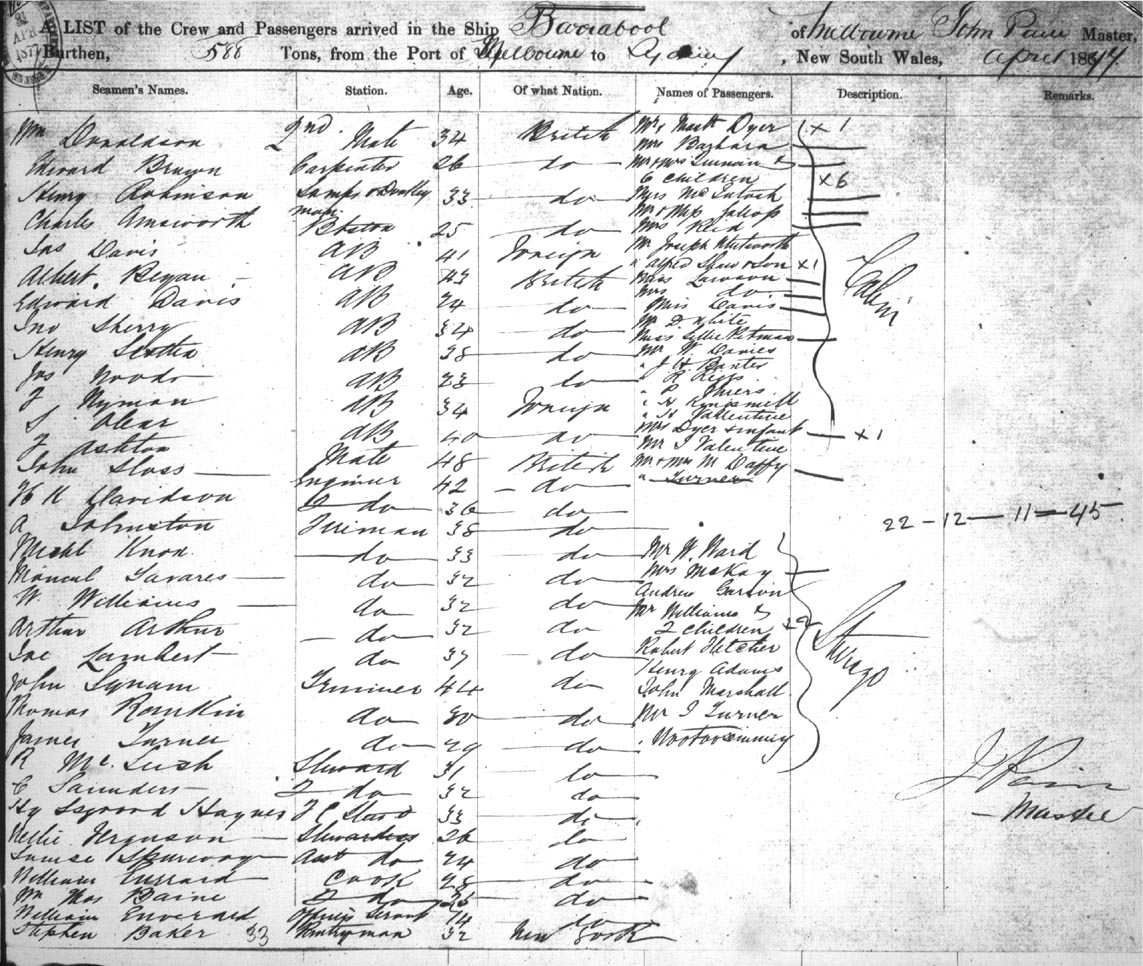 A LIST of the Crew and Passengers arrived in the Ship Barrabool of Melbourne John Paine Master,
Burthen, 588 Tons, from the Port of Melbourne to Sydney, New South Wales, April 1877
Seamen's Names. Station. Age. Of what Nation. Names of Passengers. Description. Remarks.
Wm Donaldson 2nd Mate 34 British
Edward Brown Carpenter 26 do
Henry Robinson Lamps & man 33 do
Charles Ainsworth 25 do
Jas Davis AB 41 Foreign
Albert Regan AB 43 British
Edward Davis AB 24 do
Jno Sherry AB 34 do
Henry AB 38 do
Jas Woods AB 23 do
J Nyman AB 34 Foreign
S AB 40 do
J Ashton Mate 48 British
John Sloss Engineer 42 do
H K Davidson 2 do 36 do
A Johnston Fireman 38 do
Michl Knox do 33 do
Manuel Tavares do 32 do
W. Williams do 32 do
Arthur Arthur do 32 do
Joe Lambert do 37 do
John Lynam Trimmer 44 do
Thomas Romkin do 30 do
James Turner do 29 do
R McLeish Steward 31 do
C Saunders 2 do 32 do
Hy Haynes F C Steward 33 do
Nellie Ferguson Stewardess 26 do
Louise Spurway Asst do 24 do
William Cook 28 do
Wm Thos Baine 2 do 25 do
William Servant 14 do
Stephen Baker 33 Pantryman 32 New York
Mr Matt Dyer x 1
Mrs Barbara
Mr & Mrs &
6 children x 6
Mrs McIntosh
Mr & Mrs Jalsop
Mrs Reid
Mr Joseph Whitworth
" Alfred Shaw & Son x 1
Miss Lawson
Mrs do
Miss Davis
Mr D. White
Miss Lillie Pitman
Mr W. Davies
" J H
" R
" P
" H Kingsmill
" H Vallentine
Mrs Dyer & infant x 1
Mr J Valentine
Mr & Mrs M Daffy
" Turner
Cabin
22 - 12 - 11 = 45
Mr W. Ward
Mrs McKay
Andrew
Mr Williams &
2 children x 2
Robert Fletcher
Henry Adams
John Marshall
Mr J Turner
Steerage
J Paine
Master